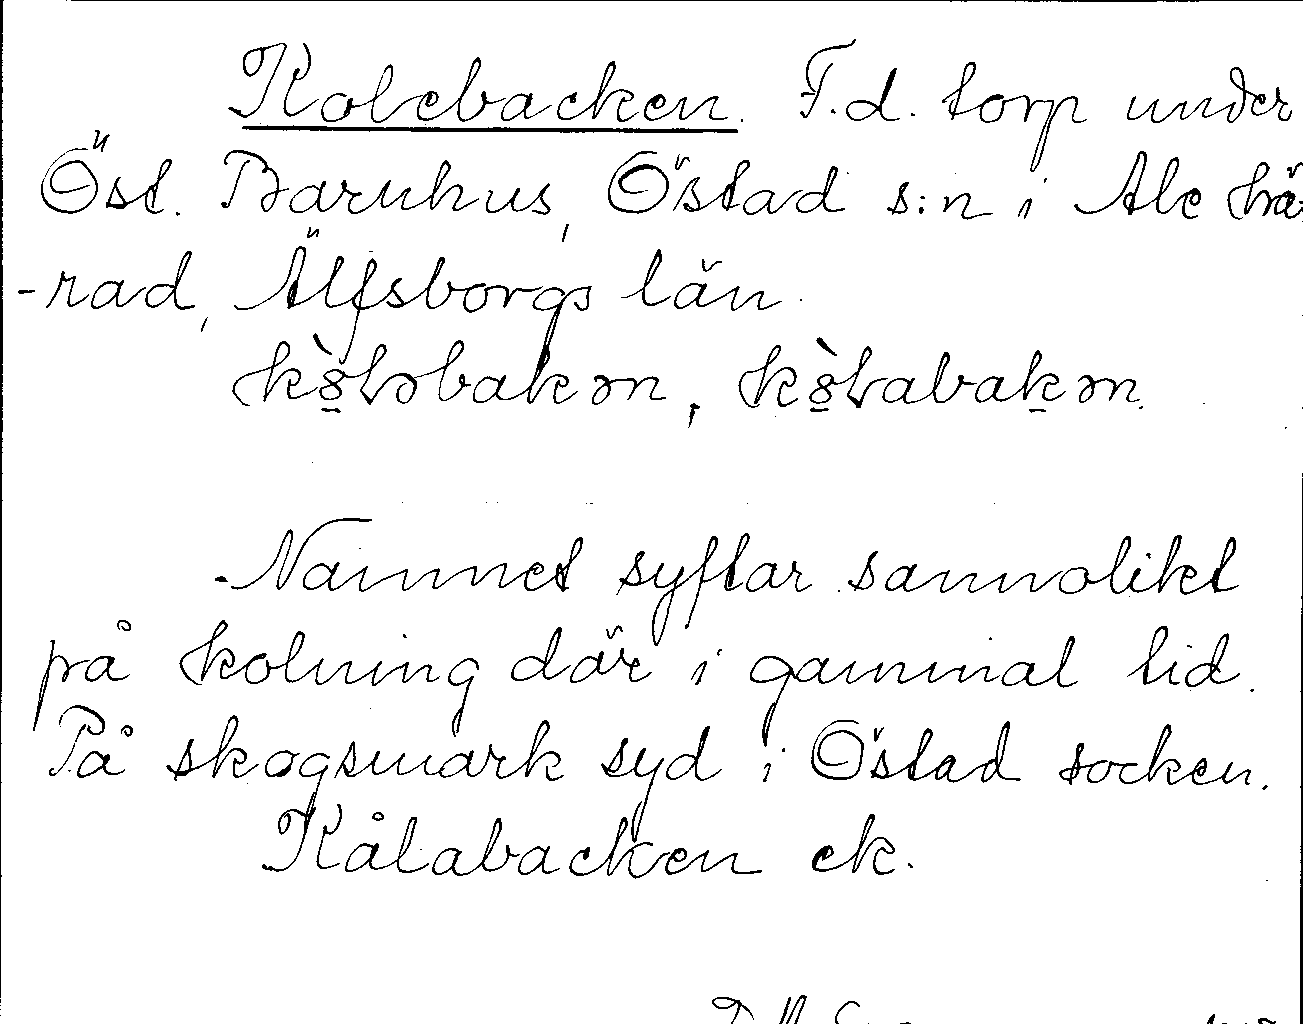 Kolebacken. F.d. torp under
Öst. Barnhus, Östad s:n i Ale hä-
-rad, Älfsborgs län.
kòləbakən, kòlabakən.
Namnet syftar sannolikt
på kolning där i gammal tid.
På skogsmark syd i Östad socken.
Kålabacken ek.